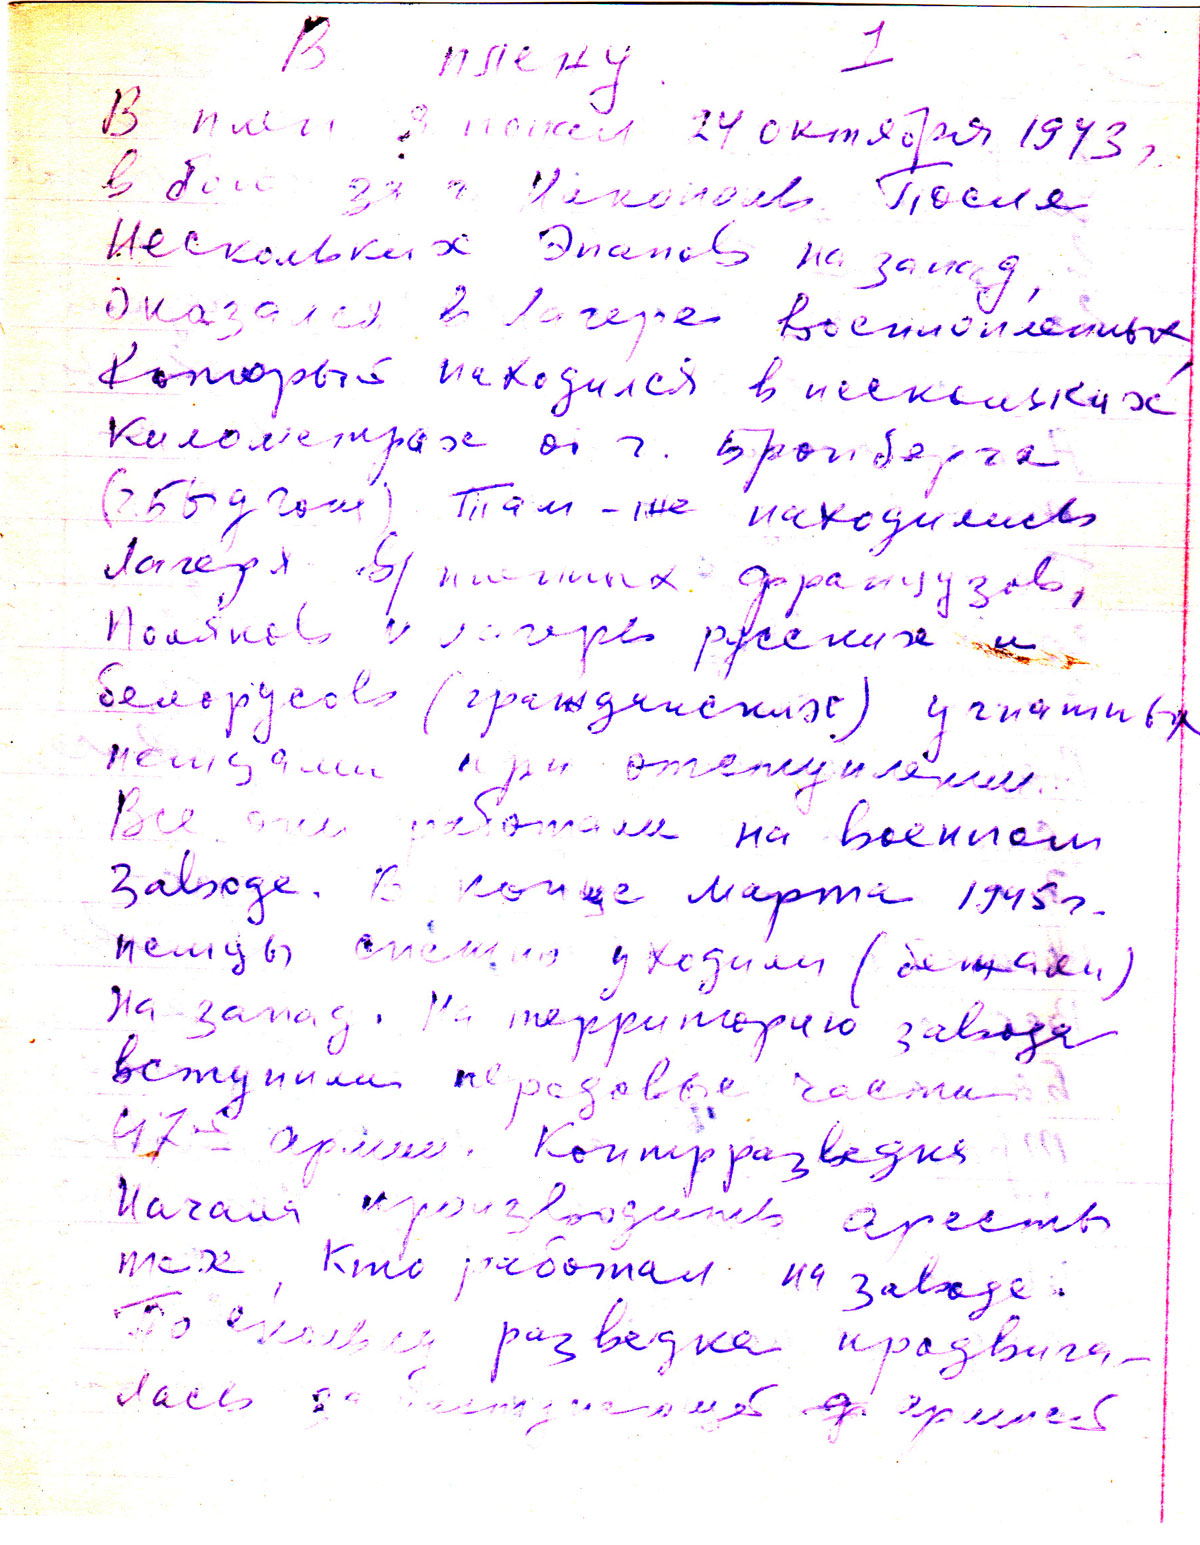 В плену 1
В плен я попал 24 октября 1943 г.
в бою за г. Никополь. После
нескольких этапов на запад,
оказался в лагере военнопленных,
который находился в нескольких
километрах от г. Бромберга
(г. Быдгощ) Там-же находились
лагеря в/пленных французов,
поляков и лагерь русских и
белорусов (гражданских) угнанных
немцами при отступлении.
Все они работали на военном
заводе. В конце марта 1945 г.
немцы спешно уходили (бежали)
на запад. На территорию завода
вступили передовые части
47-й армии. Контрразведка
начала производить аресты
тех, кто работал на заводе.
Поскольку разведка продвига-
лась за наступающей армией